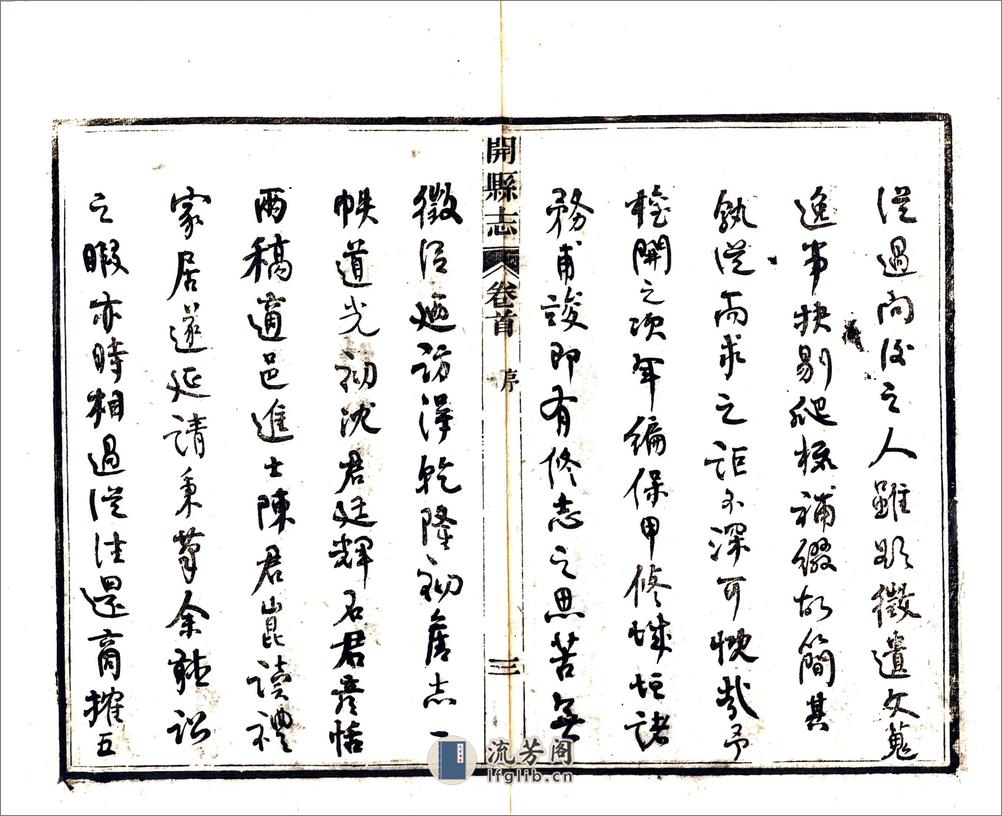 從過問後之人雖欲徵遺文蒐
逸事抉剔爬梳補綴故簡其
孰從而求之詎不深可愧哉予
權開之項年編保甲修城垣諸
務甫竣即有修志之思苦無
開縣志 卷首 序 三
徵從廻訪得乾隆初舊志一
帙道光初沈君廷輝石君彦恬
兩稿適邑進士陳君崑讀禮
家居遂延請秉筆余聽訟
之暇亦時相過從往還商搉五
流芳阁
lfglib.cn